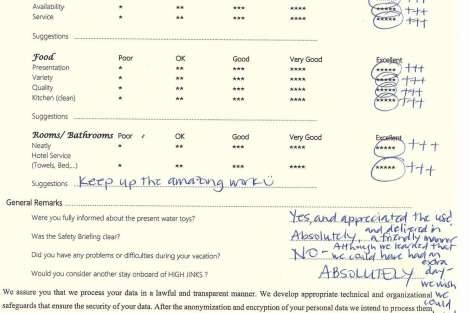 Availability * ** *** **** ***** +++
Service * ** *** **** ***** +++
Suggestions
Food Poor OK Good Very Good Excellent
Presentation * ** *** **** ***** +++
Variety * ** *** **** ***** +++
Quality * ** *** **** ***** +++
Kitchen (clean) * ** *** **** ***** +++
Suggestions
Rooms/ Bathrooms Poor OK Good Very Good Excellent
Neatly * ** *** **** ***** +++
Hotel Service
(Towels, Bed,...) * ** *** **** ***** +++
Suggestions Keep up the amazing work ü
General Remarks
Were you fully informed about the present water toys? Yes, and appreciated the use!
Was the Safety Briefing clear? Absolutely, and delivered in a friendly manner
Did you have any problems or difficulties during your vacation? NO - Although we learned that we could have had an extra day-
Would you consider another stay onboard of HIGH JINKS ? ABSOLUTELY
we wish
we could
We assure you that we process your data in a lawful and transparent manner. We develop appropriate technical and organizational
safeguards that ensure the security of your data. After the anonymization and encryption of your personal data we intend to process them